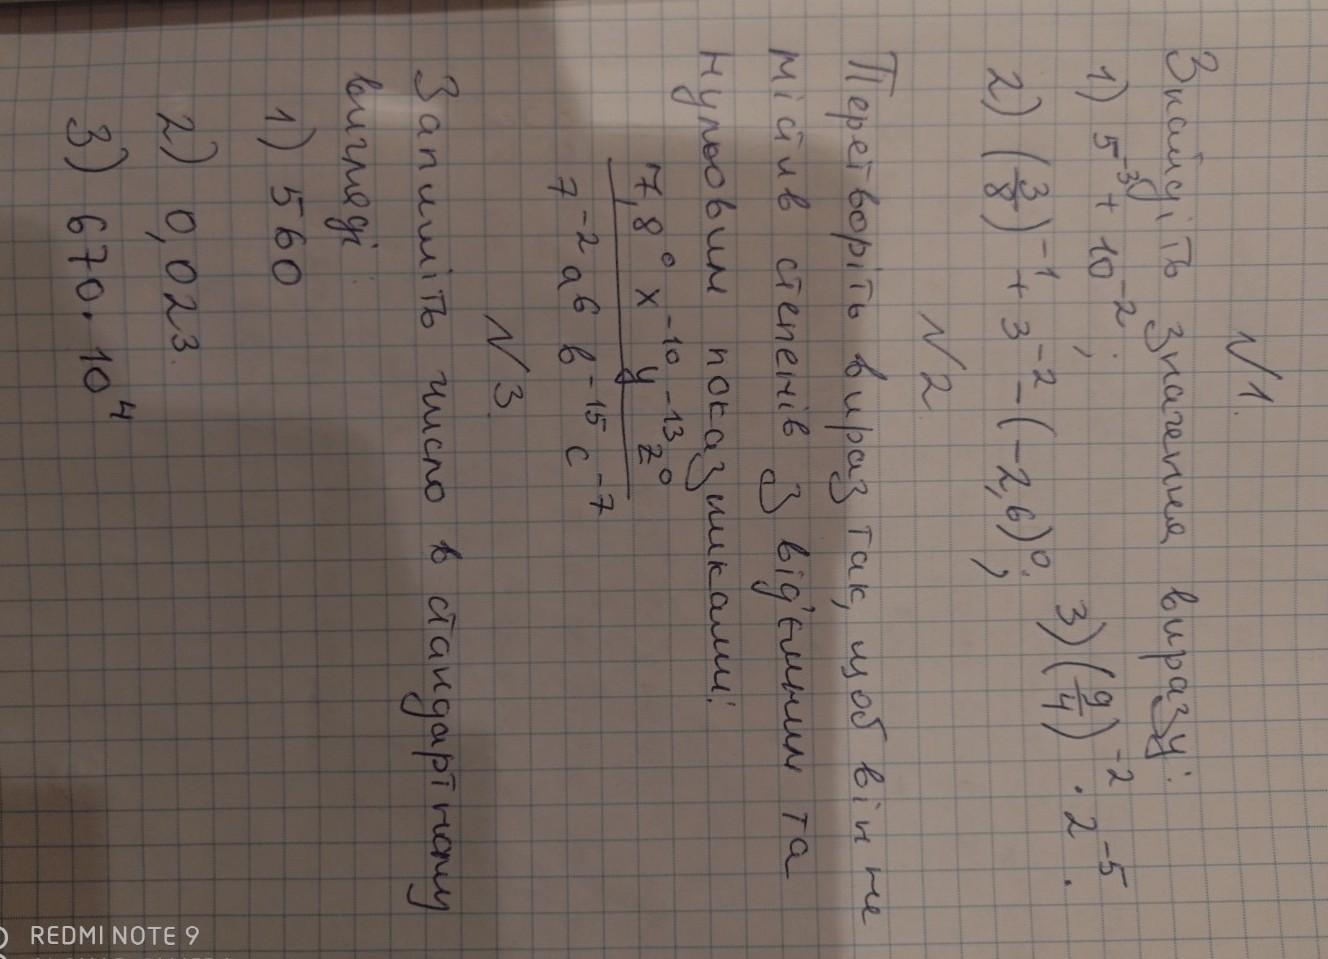 N1.
Знайдіть значення виразу:
1) 5⁻³ + 10⁻²;
2) (3/8)⁻¹ + 3⁻² - (-2,6)⁰; 3) (9/4)⁻² · 2⁻⁵.
N2
Перетворіть вираз так, щоб він не
мітив степенів з від'ємним та
нульовим показниками:
7,8⁰ x⁻¹⁰ y⁻¹³ z⁰
7⁻² a6 в⁻¹⁵ c⁻⁷
N3.
Запишіть число в стандартному
вигляді
1) 560
2) 0,023.
3) 670·10⁴
REDMI NOTE 9